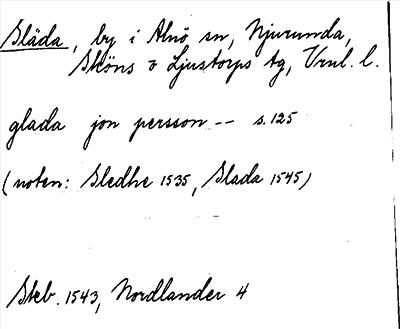 Släda, by i Alnö sn, Njurunda,
Sköns o Ljustorps tg, Vrnl. l.
glada jon persson -- s. 125
(noten: Sledhe 1535, Slada 1545)
Skb. 1543, Nordlander 4